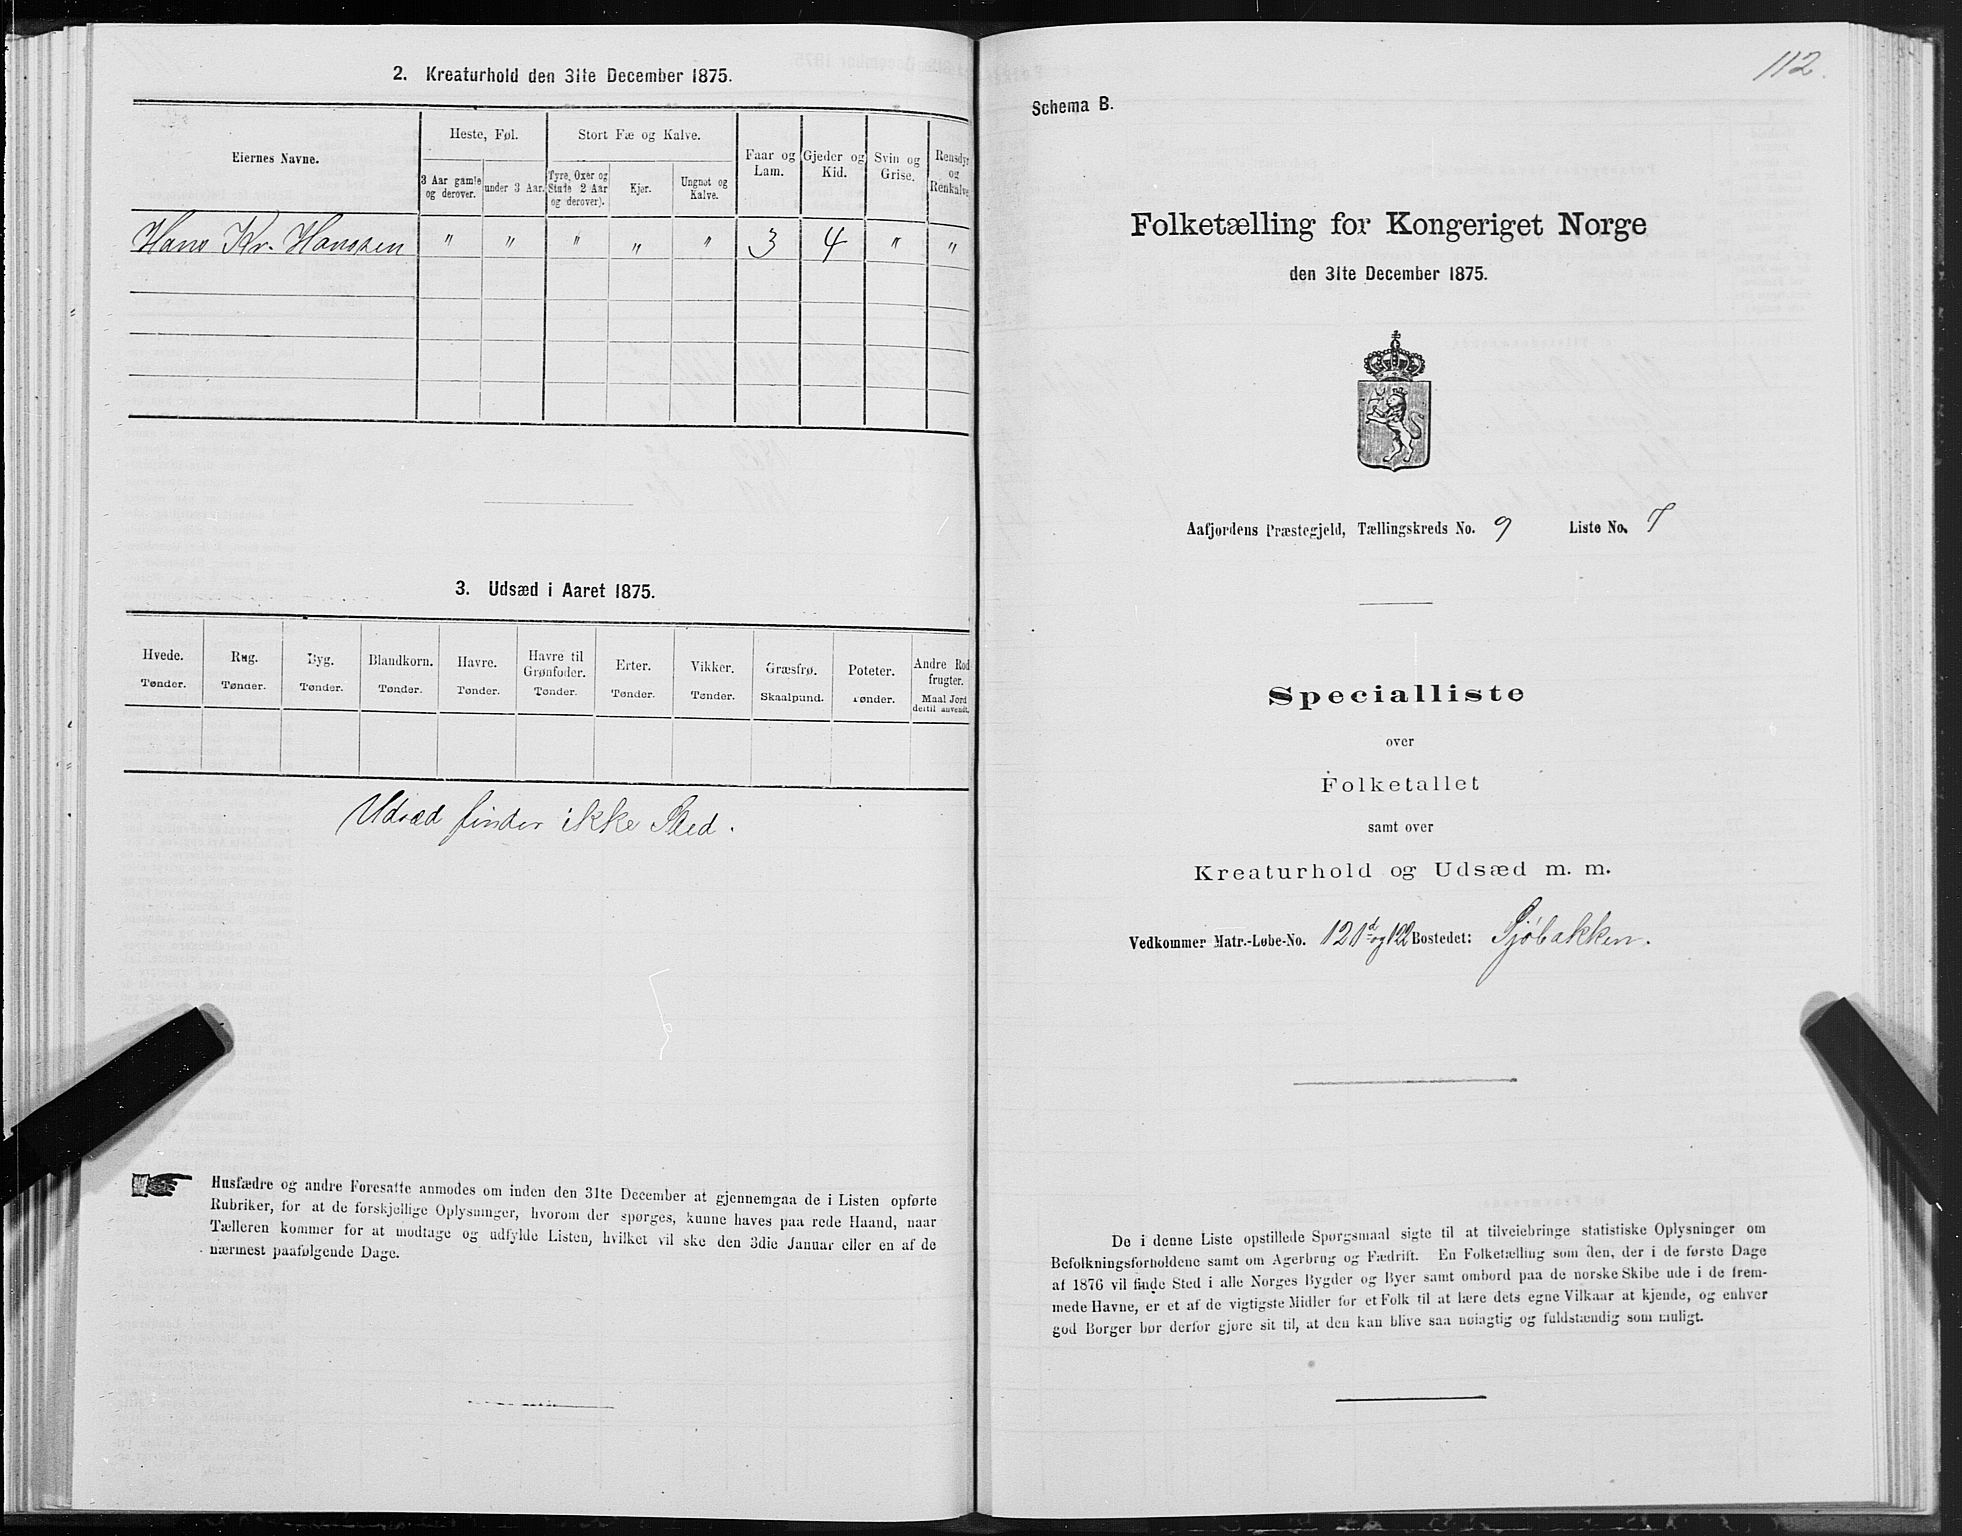 2. Kreaturhold den 31te December 1875.
Eiernes Navne.
Heste, Føl.
Stort Fæ og Kalve.
Faar og Lam.
Gjeder og Kid.
Svin og Grise.
Rensdyr og Renkalve.
3 Aar gamle og derover.
under 3 Aar.
Tyre, Oxer og Stude 2 Aar og derover).
Kjør.
Ungnøt og Kalve.
Hans Kr. Hanssen " " " " " 3 4 " "
3. Udsæd i Aaret 1875.
Hvede. Tønder.
Rug. Tønder.
Byg. Tønder.
Blandkorn. Tønder.
Havre. Tønder.
Havre til Grønfoder. Tønder.
Erter. Tønder.
Vikker. Tønder.
Græsfrø. Skaalpund.
Poteter. Tønder.
Andre Rodfrugter. Maal Jord dertil anvendt.
Udsæd finder ikke Sted.
Husfædre og andre Foresatte anmodes om inden den 31te December at gjennemgaa de i Listen opførte
Rubriker, for at de forskjellige Oplysninger, hvorom der spørges, kunne haves paa rede Haand, naar
Tælleren kommer for at modtage og udfylde Listen, hvilket vil ske den 3die Januar eller en af de
nærmest paafølgende Dage.
112.
Schema B.
Folketælling for Kongeriget Norge
den 31te December 1875.
Aafjordens Præstegjeld, Tællingskreds No. 9 Liste No. 7
Specialliste
over
Folketallet
samt over
Kreaturhold og Udsæd m. m.
Vedkommer Matr.-Løbe-No. 121d og 122 Bostedet: Sjöbakken.
De i denne Liste opstillede Spørgsmaal sigte til at tilveiebringe statistiske Oplysninger om
Befolkningsforholdene samt om Agerbrug og Fædrift. En Folketælling som den, der i de første Dage
af 1876 vil finde Sted i alle Norges Bygder og Byer samt ombord paa de norske Skibe ude i de frem-
mede Havne, er et af de vigtigste Midler for et Folk til at lære dets egne Vilkaar at kjende, og enhver
god Borger bør derfor gjøre sit til, at den kan blive saa nøiagtig og fuldstændig som muligt.